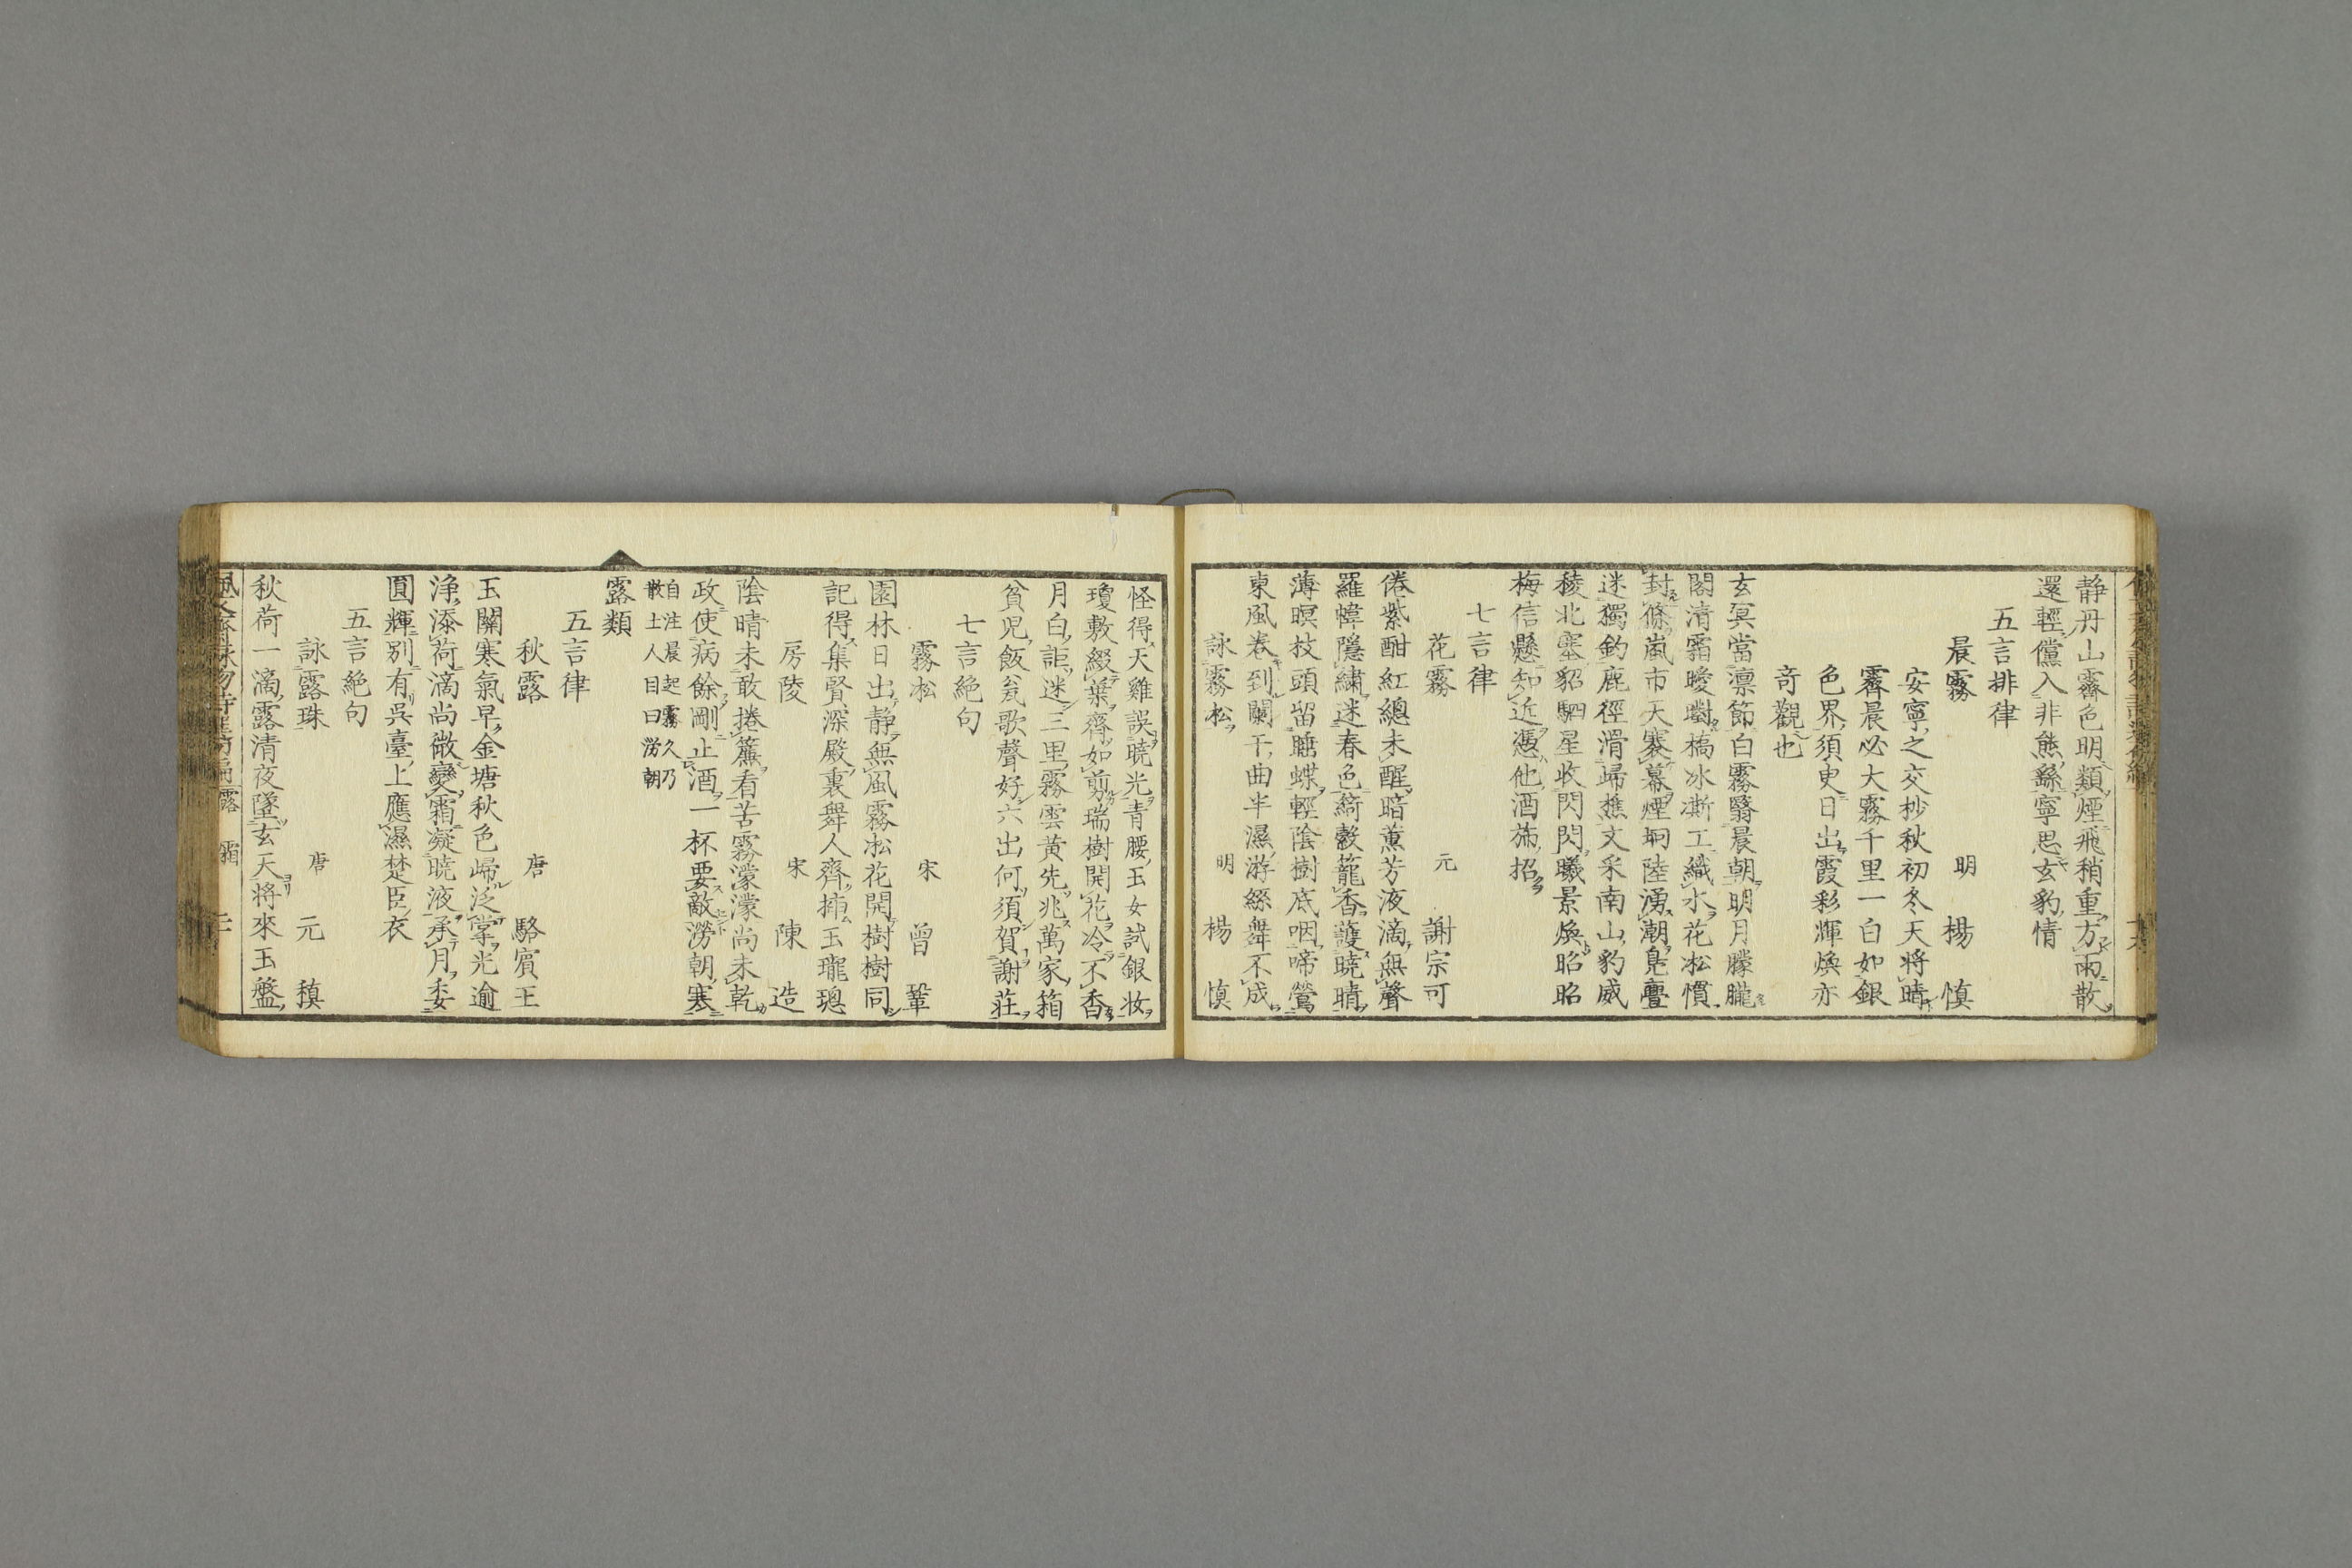 静丹山霽色明類煙飛稍重方雨散
還輕儻入非熊繇寧思玄豹情
五言排律
晨霧 明 楊慎
安寧之交杪秋初冬天將晴
霽晨必大霧千里一白如銀
色界須臾日出霞彩輝煥亦
竒觀也
玄冥當凛節白霧翳晨朝明月朦朧
閣清霜曖㬣橋冰澌工織水花凇慣
封條嵐市天褰幕煙坰陸湧潮凫亹
迷獨釣鹿徑滑歸樵文采南山豹威
稜北塞貂駟星收閃閃曦景煥昭昭
梅信懸知近憑他酒斾招
七言律
花霧 元 謝宗可
倦紫酣紅總未醒暗薰芳液滴無聲
羅幃隱繡迷春色綺縠籠香護曉晴
薄暝枝頭留睡蝶輕陰樹底咽啼鶯
東風卷到闌干曲半濕游絲舞不成
詠霧凇 明 楊慎
怪得天雞誤曉光青腰玉女試銀妝
瓊敷綴葉齊如剪瑞樹開花冷不香
月白詎迷三里霧雲黃先兆萬家箱
貧児飯瓮歌聲好六出何須賀謝莊
七言絶句
霧凇 宋 曾鞏
園林日出静無風霧凇花開樹樹同
記得集賢深殿裏舞人齊揷玉瓏璁
房陵 宋 陳造
陰晴未敢捲簾看苦霧濛濛尚未乾
政使病餘剛止酒一杯要敵澇朝寒
自注晨起霧久乃
散土人目曰澇朝
露類
五言律
秋露 唐 駱賓王
玉關寒氣早金塘秋色歸泛掌光逾
淨添荷滴尚微變霜凝曉液承月委
圓輝別有呉臺上應濕楚臣衣
五言絶句
詠露珠 唐 元稹
秋荷一滴露清夜墜玄天將來玉盤
露 霜